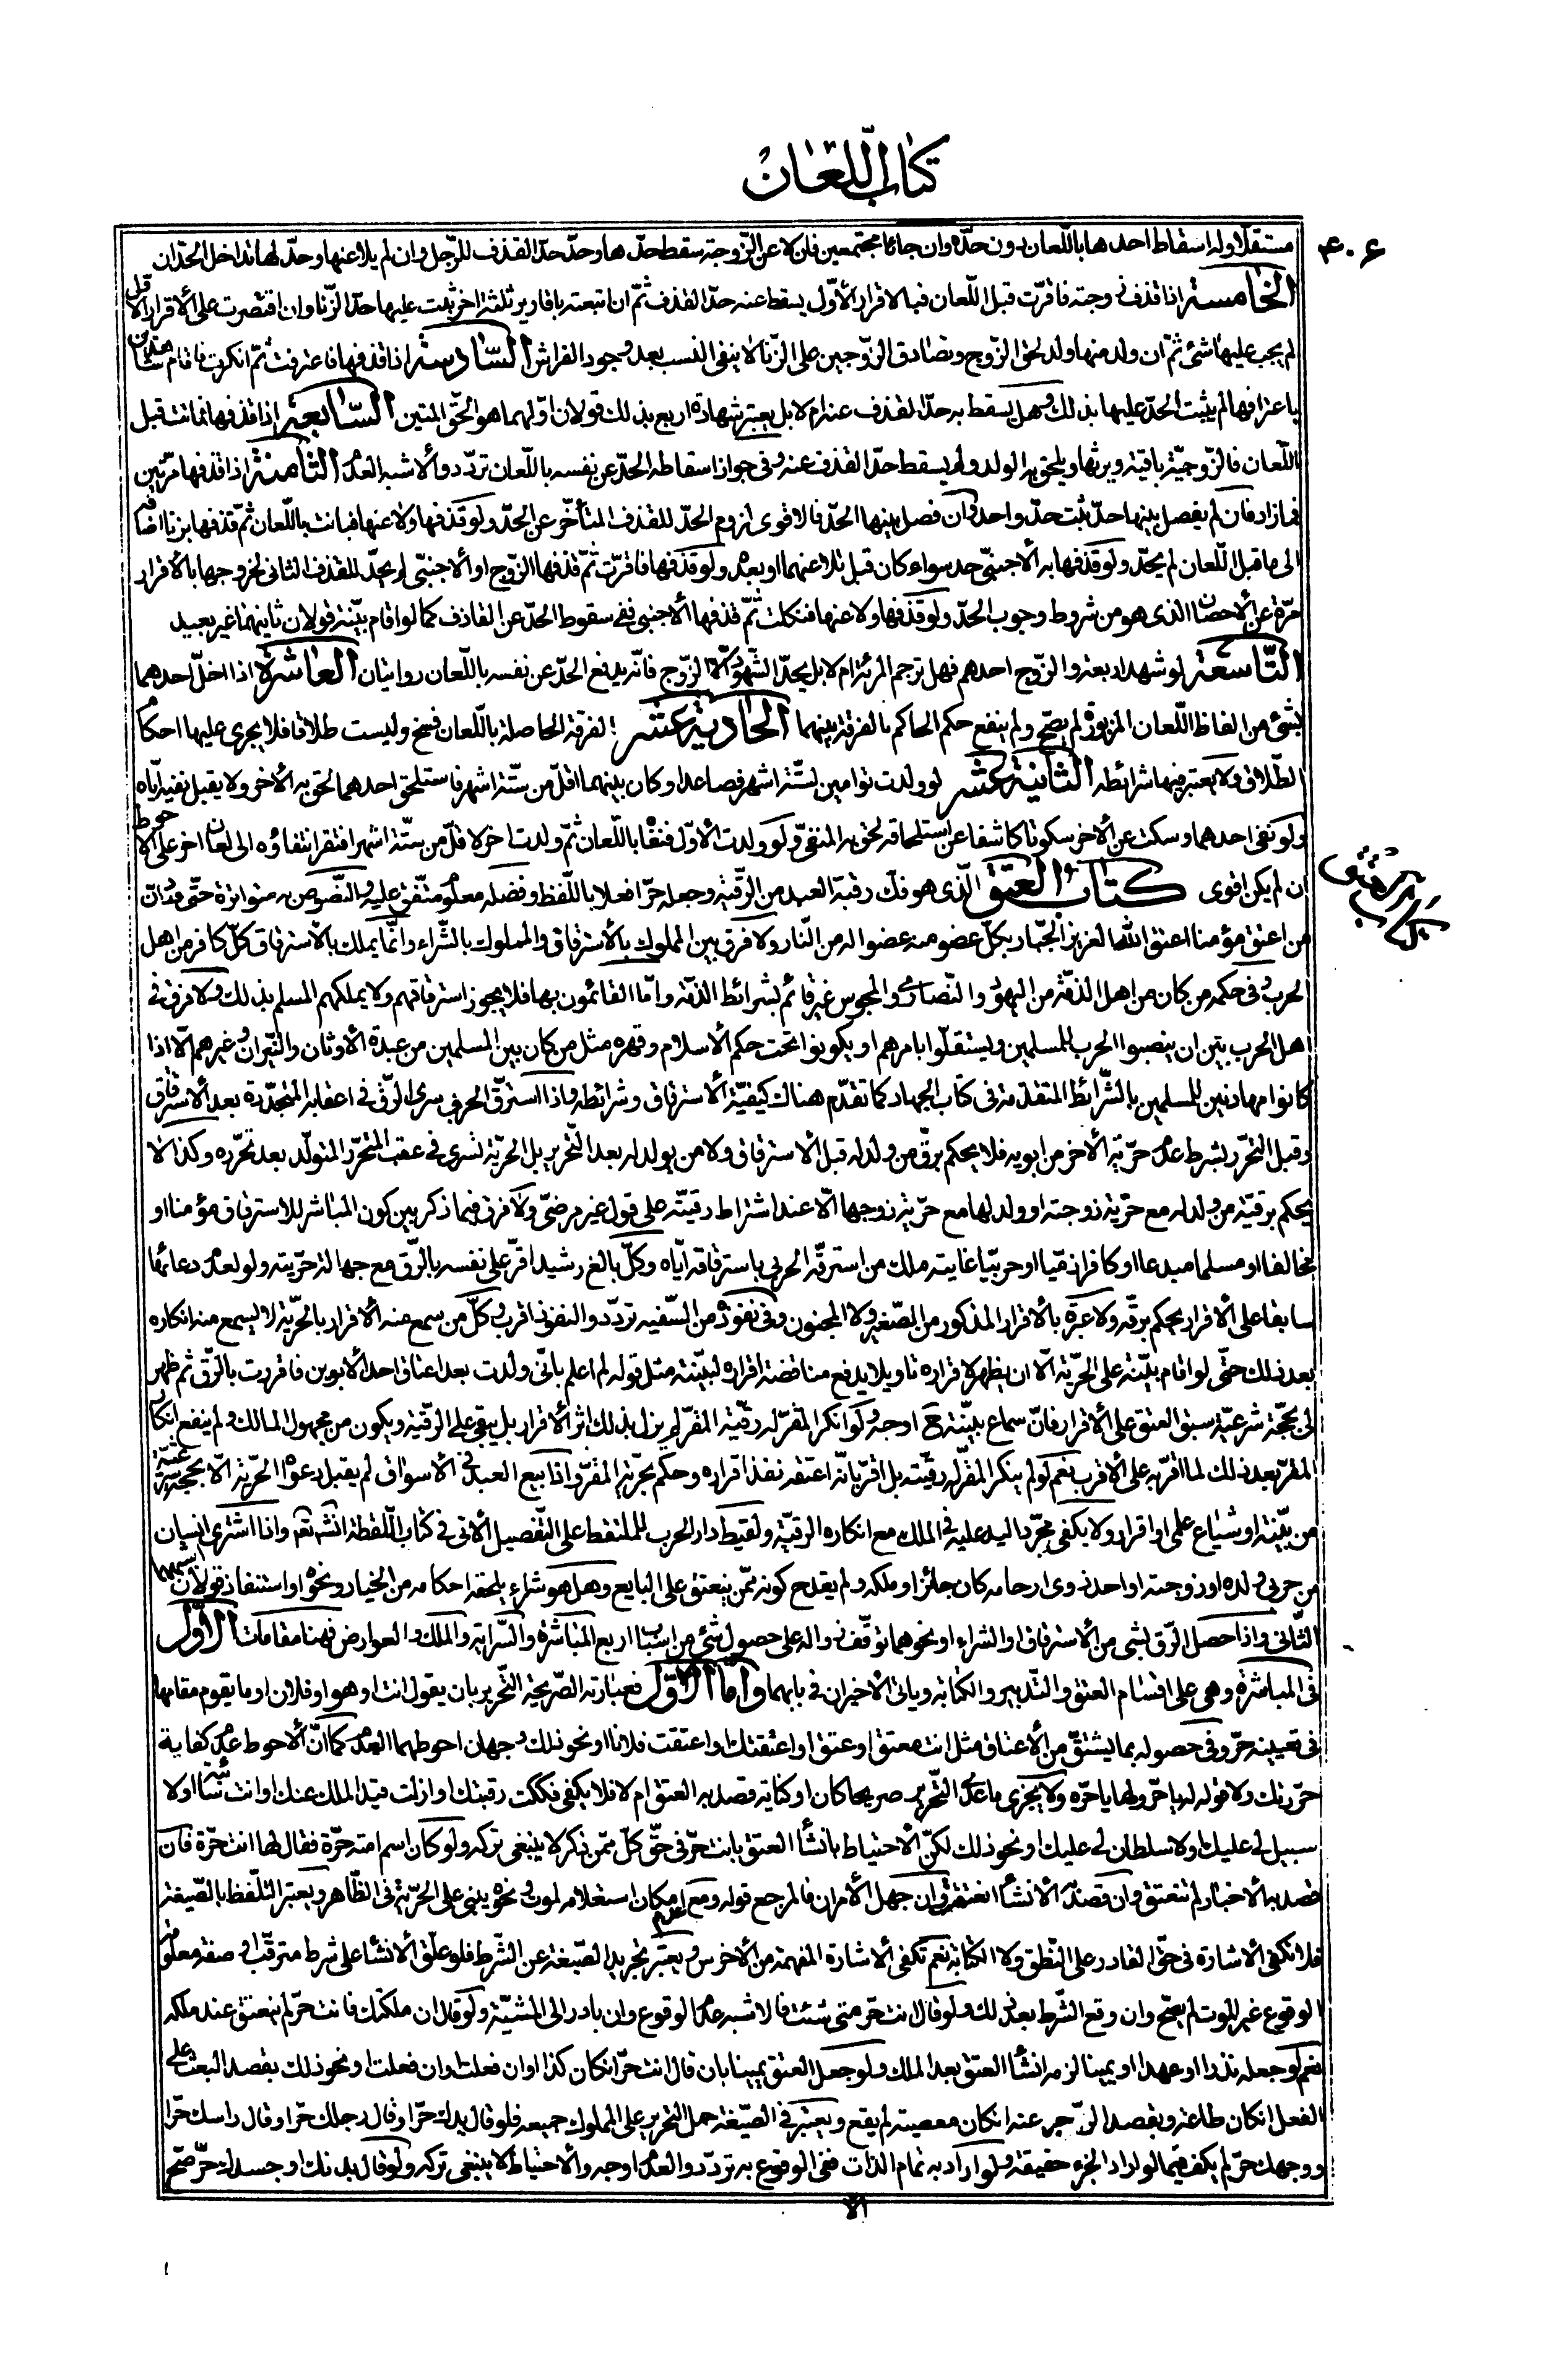 كتاب اللّعان
۴۰۶
مستقلّا وله اسقاط احدهما باللّعان دون حدّه وان جائا مجتمعين فان لاعن الزّوجة سقط حدّها وحدّ حدّ القذف للرّجل وان لم يلاعنها وحدّ لهما تداخل الحدّان
الخامسة اذا قذف زوجته فاقرّت قبل اللّعان فبالاقرار الأوّل يسقط عنه حدّ القذف ثمّ ان اتبعته باقارير ثلثة اخر ثبت عليها حدّ الزّنا وان اقتصرت على الأقرار الأوّل
لم يجب عليها شئ ثمّ ان ولد منها ولد لحق الزّوج وتصادق الزّوجين على الزّنا لا ينفى النسب بعد وجود الفراش السّادسة اذا قذفها فاعترفت ثمّ انكرت فاقام شاهدين
باعترافها لم يثبت الحدّ عليها بذلك وهل يسقط به حدّ القذف عنه ام لا بل يعتبر شهادة اربع بذلك قولان اوّلهما هو الحقّ المتين السّابعة اذا قذفها فماتت قبل
اللّعان فالزّوجيّة باقية ويرثها ويلحق به الولد ولم يسقط حدّ القذف عنه وفى جواز اسقاطه الحدّ عن نفسه باللّعان تردّد والأشبه العدم الثّامنة اذا قذفها مرّتين
فمازاد فان لم يفصل بينها حدّ ثبت حدّ واحد وان فصل بينها الحدّ فالاقوى لزوم الحدّ للقذف المتأخّر عن الحدّ ولو قذفها ولاعنها فبانت باللّعان ثمّ قذفها بزنا اضافه
الى ما قبل اللّعان لم يحدّ ولو قذفها به الأجنبىّ حد سواء كان قبل تلاعنهما او بعده ولو قذفها فاقرّت ثمّ قذفها الزّوج او الأجنبىّ لم يحدّ للقذف الثانى لخروجها بالأقرار
مرّة عن الأحصان الذى هو من شروط وجوب الحدّ ولو قذفها ولاعنها فنكلت ثمّ قذفها الأجنبى ففى سقوط الحدّ عن القاذف كما لو اقام بيّنة قولان ثانيهما غير بعيد
التّاسعة لو شهد اربعة والزّوج احدهم فهل ترجم المرئة ام لا بل يحدّ الشّهود الّا الزّوج فانّه يدفع الحدّ عن نفسه باللّعان روايتان العاشرة اذا اخلّ احدهما
بشئ من الفاظ اللّعان المزبورة لم يصحّ ولم ينفع حكم الحاكم بالفرقة بينهما الحادية عشر الفرقة الحاصلة باللّعان فسخ وليست طلاقا فلا يجرى عليها احكام
الطّلاق ولا يعتبر فيها شرائطه الثانية عشر لو ولدت توامين لستّة اشهر فصاعدا وكان بينهما اقلّ من ستّة اشهر فاستلحق احدهما لحق به الأخر ولا يقبل نفيه ايّاه
ولو نفى احدهما وسكت عن الأخر سكوتا كاشفا عن استلحاقه لحق به المنفىّ ولو ولدت الأوّل فنفاه باللّعان ثمّ ولدت اخر لاقلّ من ستّة اشهر افتقر انتفاؤه الى لعان اخر على الأحوط
ان لم يكن اقوى كتاب العتق الّذى هو فكّ رقبة العبد من الرّقيّة وجعله حرّا فعلا باللّفظ وفضله معلوم متّفق عليه والنّصوص به متواترة حتّى ورد انّ
من اعتق مؤمنا اعتق اللّه العزيز الجبّار بكلّ عضو منه عضوا له من النّار ولا فرق بين المملوك بالأسترقاق والمملوك بالشّراء وانّما يملك بالأسترقاق كلّ كافر من اهل
الحرب وفى حكمه من كان من اهل الذمّة من اليهود والنّصارى والمجوس غير قائم بشرائط الذمّة وامّا القائمون بها فلا يجوز استرقاقهم ولا يملكهم المسلم بذلك ولا فرق فى
اهل الحرب بين ان ينصبوا الحرب للمسلمين ويستقلّوا بامرهم او يكونوا تحت حكم الأسلام وقهره مثل من كان بين المسلمين من عبدة الأوثان والنّيران وغيرهم الّا اذا
كانوا مهادنين للمسلمين بالشّرائط المتقدّمة فى كتاب الجهاد كما تقدّم هناك كيفيّة الأسترقاق وشرائطه واذا استرقّ الحربى سرى الرّقّ فى اعقابه المتجدّدة بعد الأسترقاق
وقبل التّحرّر بشرط عدم حرّية الأخر من ابويه فلا يحكم برقّ من ولد له قبل الأسترقاق ولا من يولد له بعد التّحرير بل الحريّة تسرى فى عقب المتحرّر المتولّد بعد تحرّره وكذا لا
يحكم برقيّة من ولد له مع حرّية زوجته او ولد لها مع حرّية زوجها الّا عند اشتراط رقيّته على قول غير مرضىّ ولا فرق فيما ذكر بين كون المباشر للاسترقاق مؤمنا او
مخالفا او مسلما مبدعا او كافرا ذمّيا او حربيّا غايته ملك من استرقّه الحربى باسترقاقه ايّاه وكلّ بالغ رشيد اقرّ على نفسه بالرّق مع جهالة حرّيته ولو لعدم دعائها
سابقا على الأقرار يحكم برقّه ولا عبرة بالأقرار المذكور من الصّغير ولا المجنون وفى نفوذه من السّفيه تردّد والنفوذ اقرب وكلّ من سمع منه الأقرار بالحريّة لا يسمع منه انكاره
بعد ذلك حتّى لو اقام بيّنة على الحرّية الّا ان يظهر لاقراره تاويلا يدفع مناقضة اقراره لبيّنته مثل قوله لم اعلم بانّى ولدت بعد اعتاق احد الأبوين فاقررت بالرّق ثم ظهر
لى بحجّة شرعيّة سبق العتق على الأقرار فانّ سماع بيّنته ح اوجه ولو انكر المقرّ له رقّية المقرّ لم يزل بذلك اثر الأقرار بل يبقى على الرقيّة ويكون من مجهول المالك ولم ينفع انكار
المقرّ بعد ذلك لما اقرّ به على الأقرب نعم لو لم ينكر المقرّ له رقيّته بل اقرّ بانّه اعتقه نفذ اقراره وحكم بحرّية المقرّ واذا بيع العبد فى الأسواق لم يقبل دعواه الحريّة الّا بحجّة شرعيّة
من بيّنة او شياع علمى او اقرار ولا يكفى مجرّد اليد عليه فى الملك مع انكاره الرقيّة ولقيط دار الحرب للملتقط على التّفصيل الأتى فى كتاب اللّقطة انشاء تعم واذا اشترى انسان
من حربى ولده او زوجته او احد ذوى ارحامه كان جائزا وملكه ولم يقدح كونه ممّن ينعتق على البايع وهل هو شراء يلحقه احكامه من الخيار ونحوه او استنقاذ قولان اشبههما
الثّانى واذا حصل الرّق بشئ من الأسترقاق او الشراء او نحوهما توقّف زواله على حصول شئ من اسباب اربع المباشرة والسّراية والملك والعوارض فهنا مقامات الأوّل
فى المباشرة وهى على اقسام العتق والتّدبير والكتابة وياتى الأخيران فى بابهما وامّا الأوّل فعبارته الصّريحة التّحرير بان يقول انت او هو او فلان او ما يقوم مقامها
فى تعيينه حرّ وفى حصوله بما يشتقّ من الأعتاق مثل انت معتق او عتق او اعتقتك او اعتقت فلانا او نحو ذلك وجهان احوطهما العدم كما انّ الأحوط عدم كفاية
حرّرتك ولا قوله له يا حرّ ولها يا حرّه ولا يجزى ما عدى التّحرير صريحا كان او كناية قصد به العتق ام لا فلا يكفى فككت رقبتك او ازلت قيد الملك عنك او انت سائبة او لا
سبيل لى عليك او لا سلطان لى عليك او نحو ذلك لكنّ الأحتياط بانشاء العتق بانت حرّ فى حقّ كلّ ممّن ذكر لا ينبغى تركه ولو كان اسم امته حرّة فقال لها انت حرّة فان
قصد به الأخبار لم تنعتق وان قصد به الأنشاء انعتقت وان جهل الأمران فالمرجع قوله ومع عدم امكان استعلامه لموت ونحوه يبنى على الحرّية فى الظّاهر ويعتبر التلفّظ بالصّيغة
فلا تكفى الأشارة فى حقّ القادر على النّطق ولا الكتابة نعم تكفى الأشارة المفهمة من الأخرس ويعتبر تجريد الصّيغة عن الشّرط فلو علّق الأنشاء على شرط مترقّب او صفة معلومة
الوقوع غير الموت لم يصحّ وان وقع الشّرط بعد ذلك ولو قال انت حرّ متى شئت فالاشبه عدم الوقوع وان بادر الى المشيّة ولو قال ان ملكتك فانت حرّ لم ينعتق عند ملكه
نعم لو جعله نذرا او عهدا او يمينا لزمه انشاء العتق بعد الملك ولو جعل العتق يمينا بان قال انت حرّ انكان كذا او ان فعلت او ان فعلت او نحو ذلك بقصد البعث على
الفعل انكان طاعة وبقصد الزّجر عنه انكان معصية لم يقع ويعتبر فى الصّيغة حمل التحرير على المملوك جميعه فلو قال يدك حرّ او قال رجلك حرّ او قال راسك حرّ او
ووجهك حرّ لم يكف فيما لو اراد الجزء حقيقة ولو اراد به تمام الذات ففى الوقوع به تردّد والعدم اوجه والأحتياط لا ينبغى تركه ولو قال بدنك او جسدك حرّ صحّ
الّا